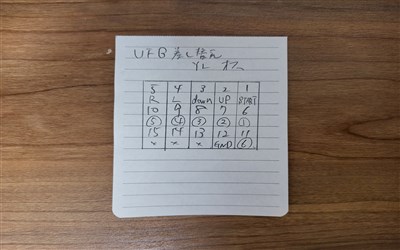 UFB 差し替え
YL オス
5 4 3 2 1
R L down UP START
10 9 8 7 6
⑤ ④ ③ ② ①
15 14 13 12 11
× × × GND ⑥